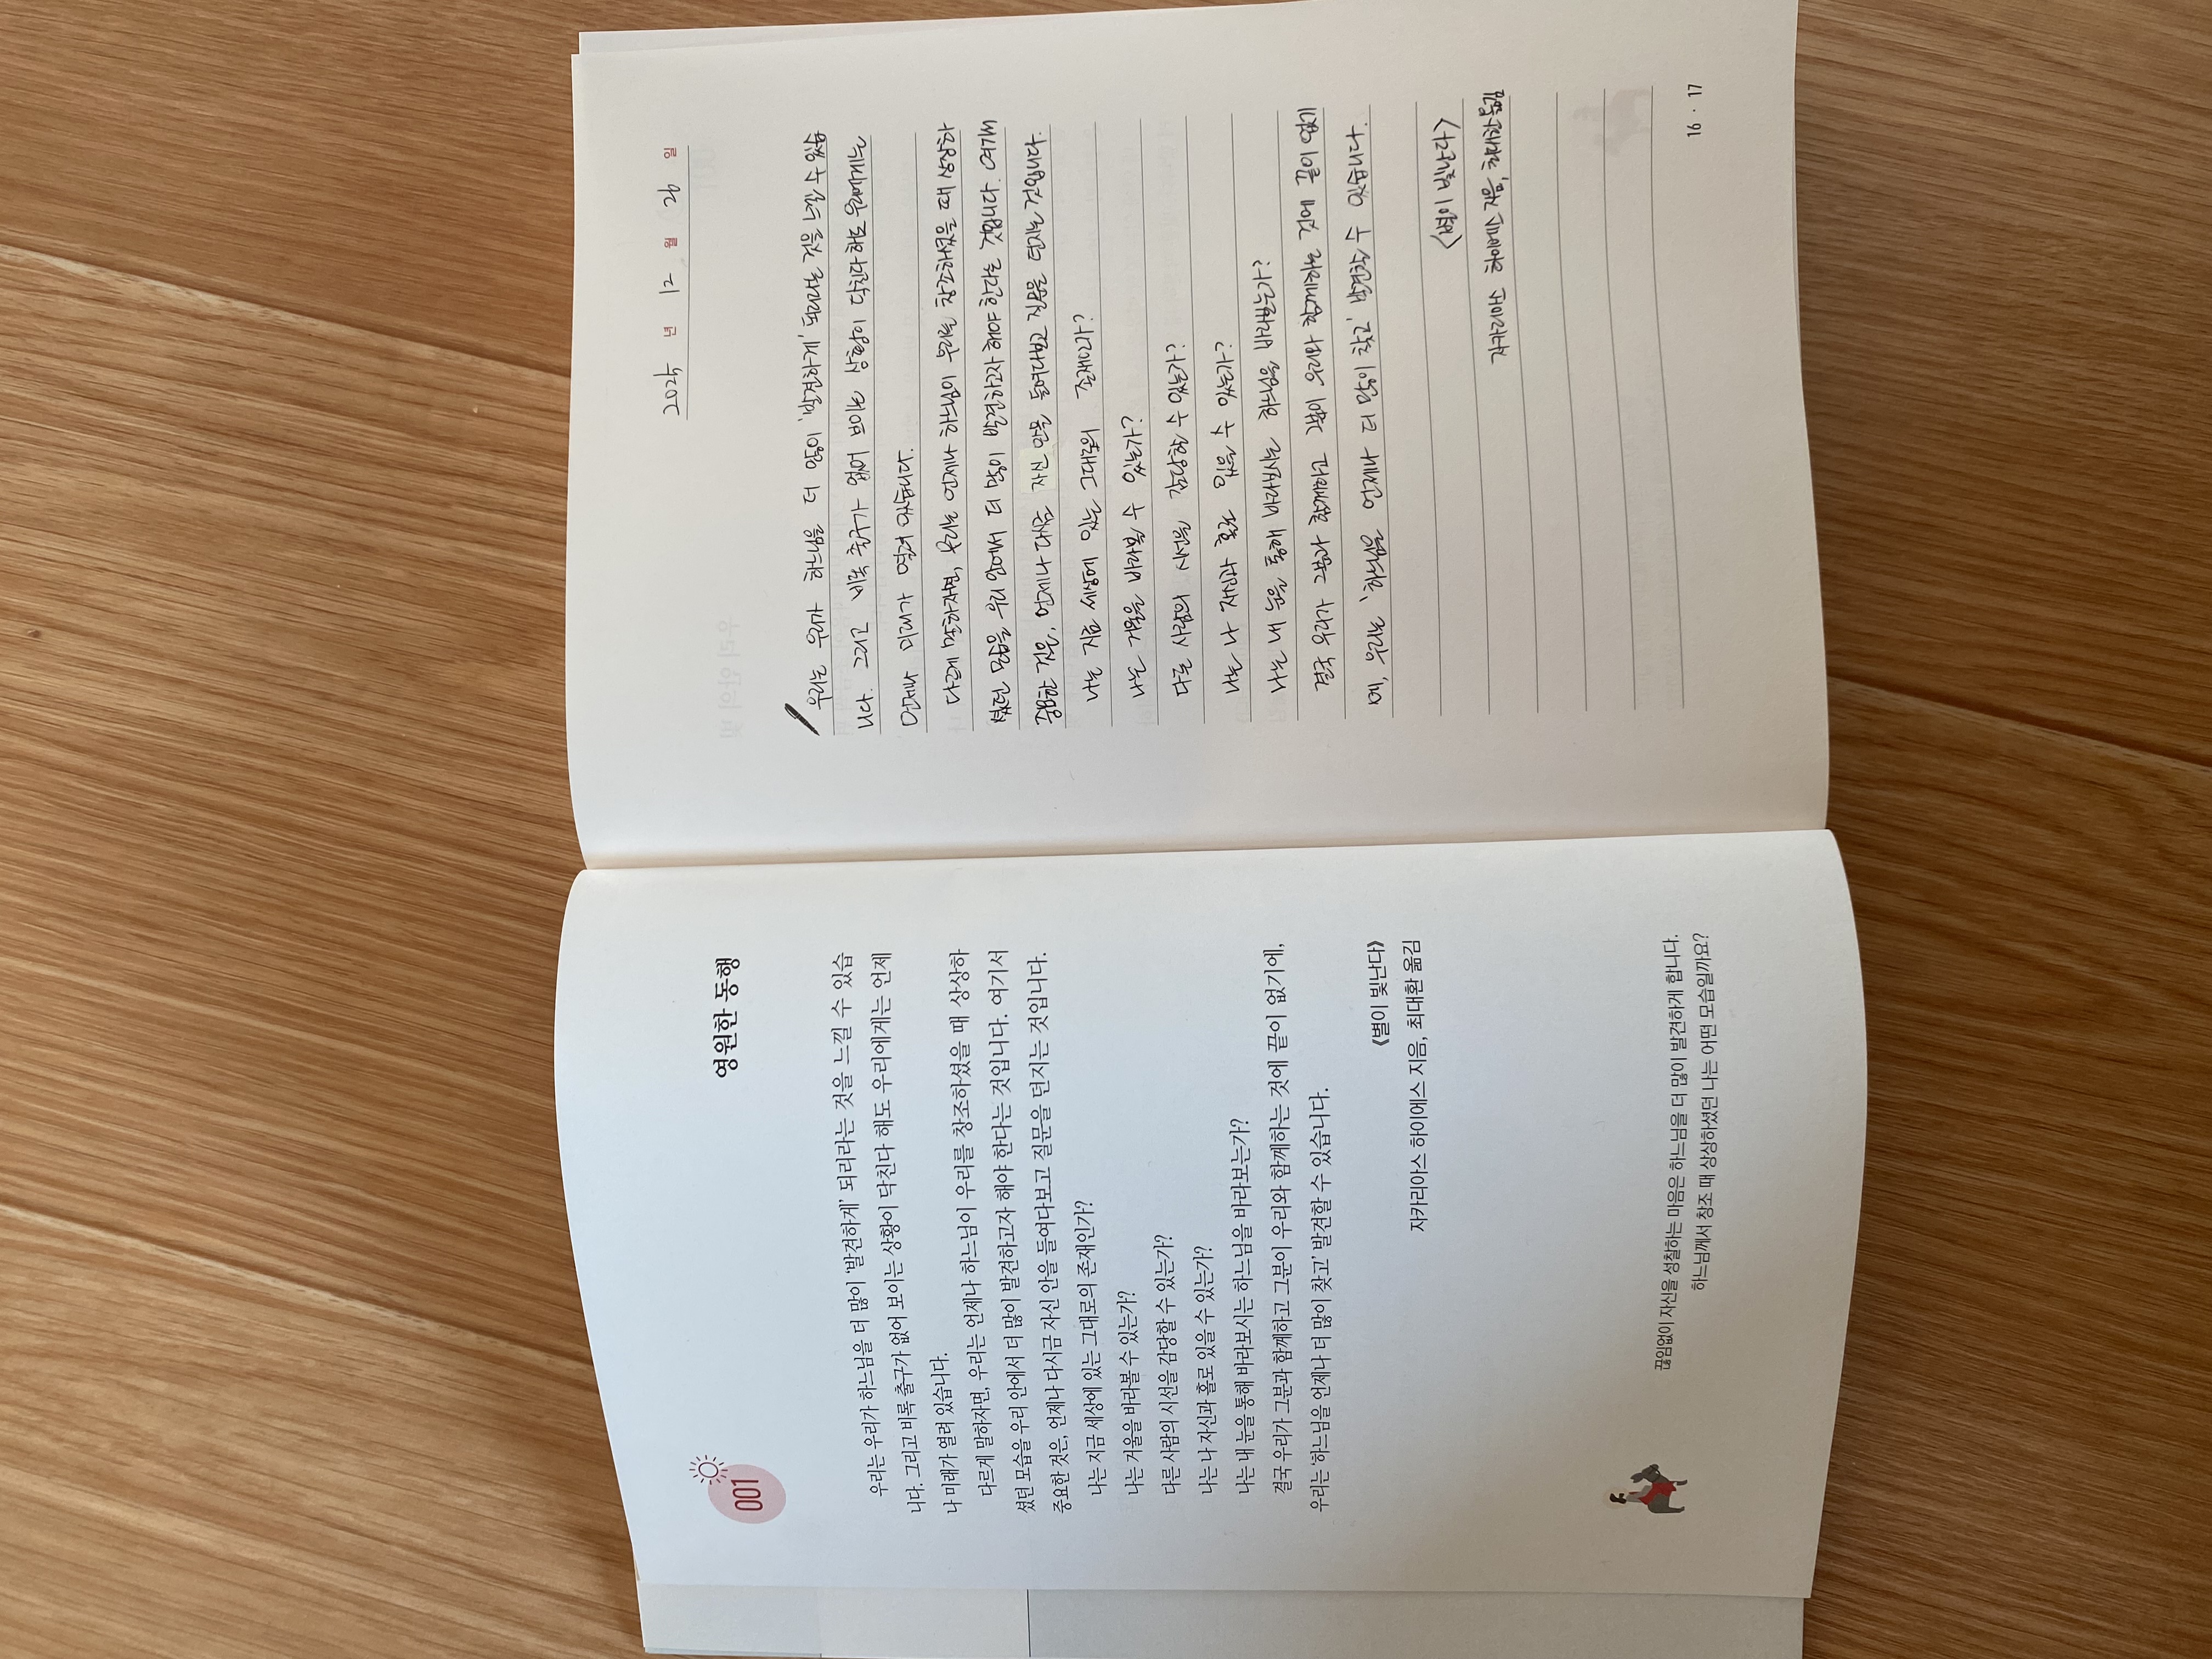 001
영원한 동행
우리는 우리가 하느님을 더 많이 ‘발견하게’ 되리라는 것을 느낄 수 있습
니다. 그리고 비록 출구가 없어 보이는 상황이 닥친다 해도 우리에게는 언제
나 미래가 열려 있습니다.
다르게 말하자면, 우리는 언제나 하느님이 우리를 창조하셨을 때 상상하
셨던 모습을 우리 안에서 더 많이 발견하고자 해야 한다는 것입니다. 여기서
중요한 것은, 언제나 다시금 자신 안을 들여다보고 질문을 던지는 것입니다.
나는 지금 세상에 있는 그대로의 존재인가?
나는 거울을 바라볼 수 있는가?
다른 사람의 시선을 감당할 수 있는가?
나는 나 자신과 홀로 있을 수 있는가?
나는 내 눈을 통해 바라보시는 하느님을 바라보는가?
결국 우리가 그분과 함께하고 그분이 우리와 함께하는 것에 끝이 없기에,
우리는 ‘하느님을 언제나 더 많이 찾고’ 발견할 수 있습니다.
《별이 빛난다》
자카리아스 하이에스 지음, 최대환 옮김
끊임없이 자신을 성찰하는 마음은 하느님을 더 많이 발견하게 합니다.
하느님께서 창조 때 상상하셨던 나는 어떤 모습일까요?
2025 년 12 월 26 일
우리는 우리가 하느님을 더 많이 '발견하게' 되리라는 것을 느낄 수 있습
니다. 그리고 비록 출구가 없어 보이는 상황이 닥친다 해도 우리에게는
언제나 미래가 열려 있습니다.
다르게 말하자면, 우리는 언제나 하느님이 우리를 창조하셨을 때 상상하
셨던 모습을 우리 안에서 더 많이 발견하고자 해야 한다는 것입니다. 여기서
중요한 것은, 언제나 다시금 자신 안을 들여다보고 질문을 던지는 것입니다.
나는 지금 세상에 있는 그대로의 존재인가?
나는 거울을 바라볼 수 있는가?
다른 사람의 시선을 감당할 수 있는가?
나는 나 자신과 홀로 있을 수 있는가?
나는 내 눈을 통해 바라보시는 하느님을 바라보는가?
결국 우리가 그분과 함께하고 그분이 우리와 함께하는 것에 끝이 없기
에, 우리는 '하느님을 언제나 더 많이 찾고' 발견할 수 있습니다.
<별이 빛난다>
자카리아스 하이에스 지음, 최대환 옮김
16 · 17